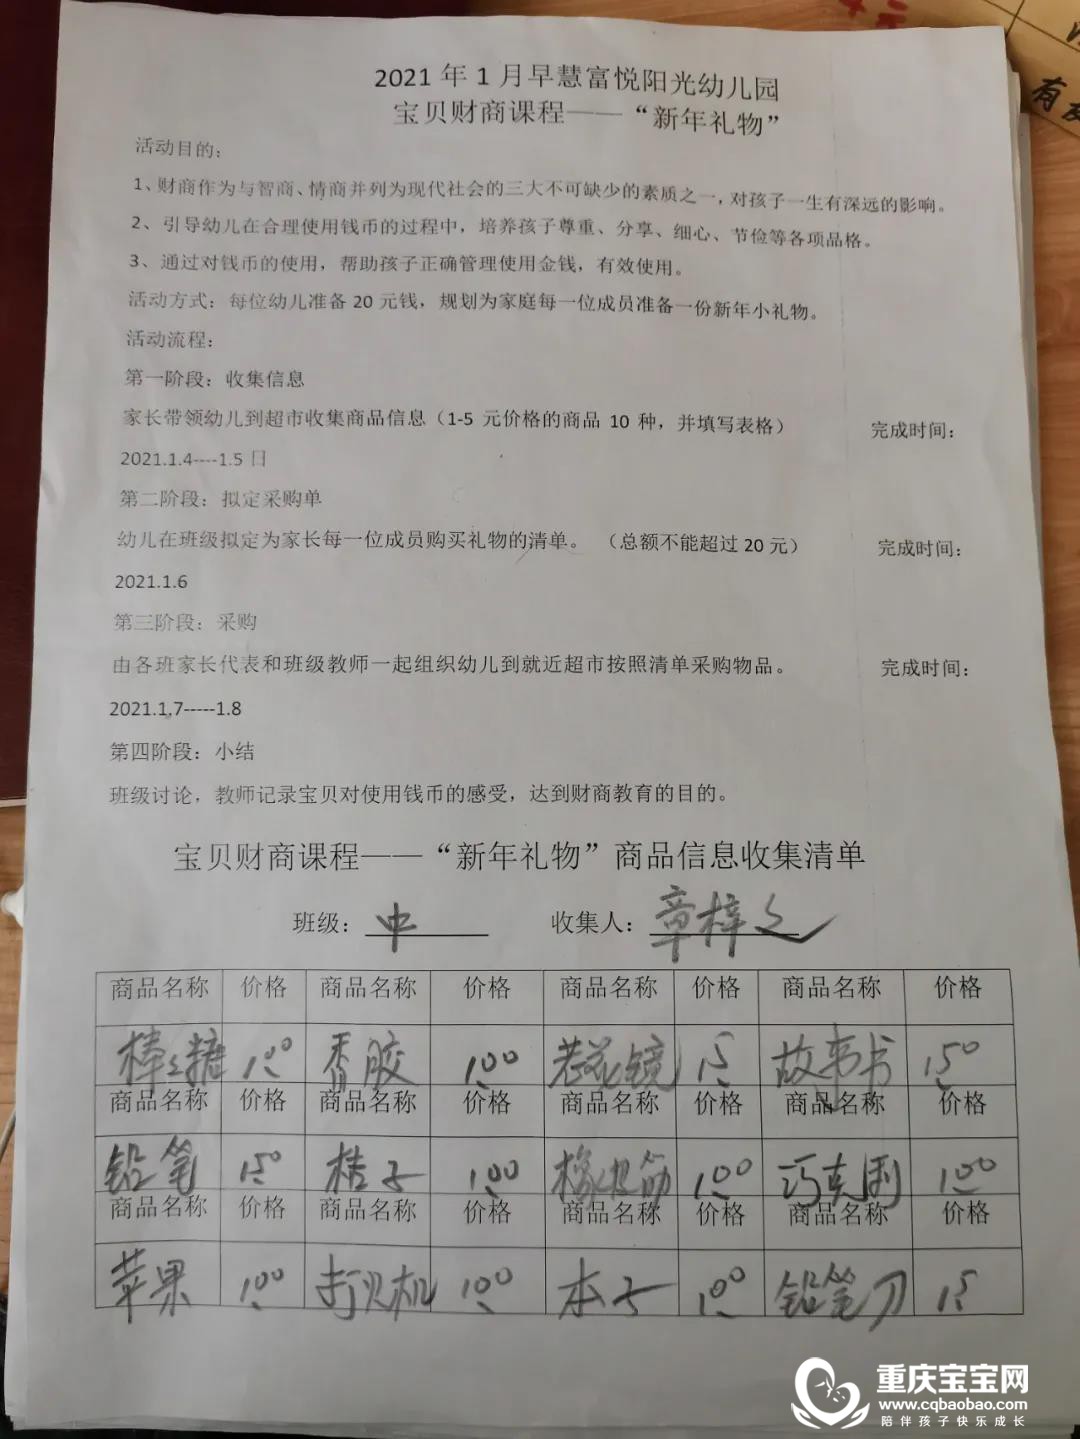 有
2021 年 1 月早慧富悦阳光幼儿园
宝贝财商课程——“新年礼物”
活动目的：
1、财商作为与智商、情商并列为现代社会的三大不可缺少的素质之一，对孩子一生有深远的影响。
2、引导幼儿在合理使用钱币的过程中，培养孩子尊重、分享、细心、节俭等各项品格。
3、通过对钱币的使用，帮助孩子正确管理使用金钱，有效使用。
活动方式：每位幼儿准备 20 元钱，规划为家庭每一位成员准备一份新年小礼物。
活动流程：
第一阶段：收集信息
家长带领幼儿到超市收集商品信息（1-5 元价格的商品 10 种，并填写表格） 完成时间：
2021.1.4----1.5 日
第二阶段：拟定采购单
幼儿在班级拟定为家长每一位成员购买礼物的清单。（总额不能超过 20 元） 完成时间：
2021.1.6
第三阶段：采购
由各班家长代表和班级教师一起组织幼儿到就近超市按照清单采购物品。 完成时间：
2021.1.7-----1.8
第四阶段：小结
班级讨论，教师记录宝贝对使用钱币的感受，达到财商教育的目的。
宝贝财商课程——“新年礼物”商品信息收集清单
班级：中 收集人：章梓
商品名称 价格 商品名称 价格 商品名称 价格 商品名称 价格
棒棒糖 1.00 香胶 1.00 镜 1.5 故事书 1.50
商品名称 价格 商品名称 价格 商品名称 价格 商品名称 价格
铅笔 1.50 桔子 1.00 橡皮筋 1.00 巧克利 1.00
商品名称 价格 商品名称 价格 商品名称 价格 商品名称 价格
苹果 1.00 机 1.00 本子 1.00 铅笔刀 1.5
重庆宝宝网
www.cqbaobao.com
陪伴孩子快乐成长